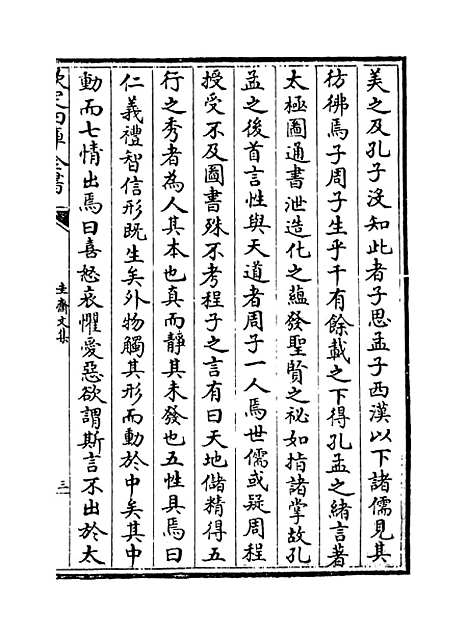 美之及孔子没知此者子思孟子西漢以下諸儒見其
彷彿焉子周子生乎千有餘載之下得孔孟之緒言著
太極圖通書泄造化之藴發聖賢之祕如指諸掌故孔
孟之後首言性與天道者周子一人焉世儒或疑周程
授受不及圖書殊不考程子之言有曰天地儲精得五
行之秀者為人其本也真而靜其未發也五性具焉曰
仁義禮智信形既生矣外物觸其形而動於中矣其中
動而七情出焉曰喜怒哀懼愛惡欲謂斯言不出於太
欽定四庫全書
文集
三